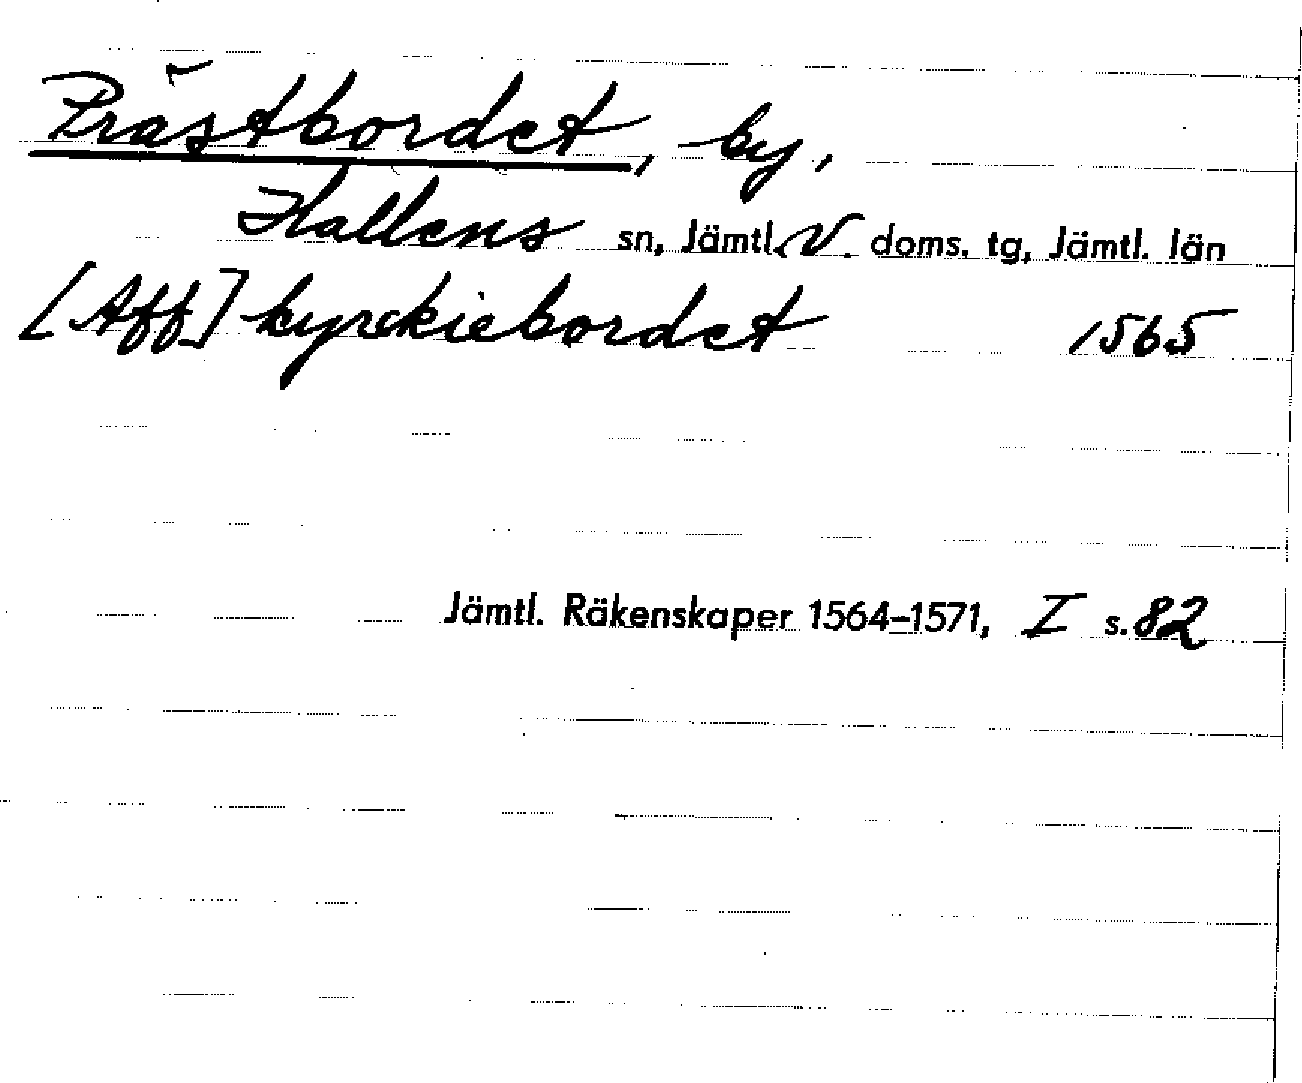 Prästbordet, by,
Hallens sn, Jämtl. V. doms. tg, Jämtl. län
[Aff] kyrckiebordet 1565
Jämtl. Räkenskaper 1564–1571, I s. 82